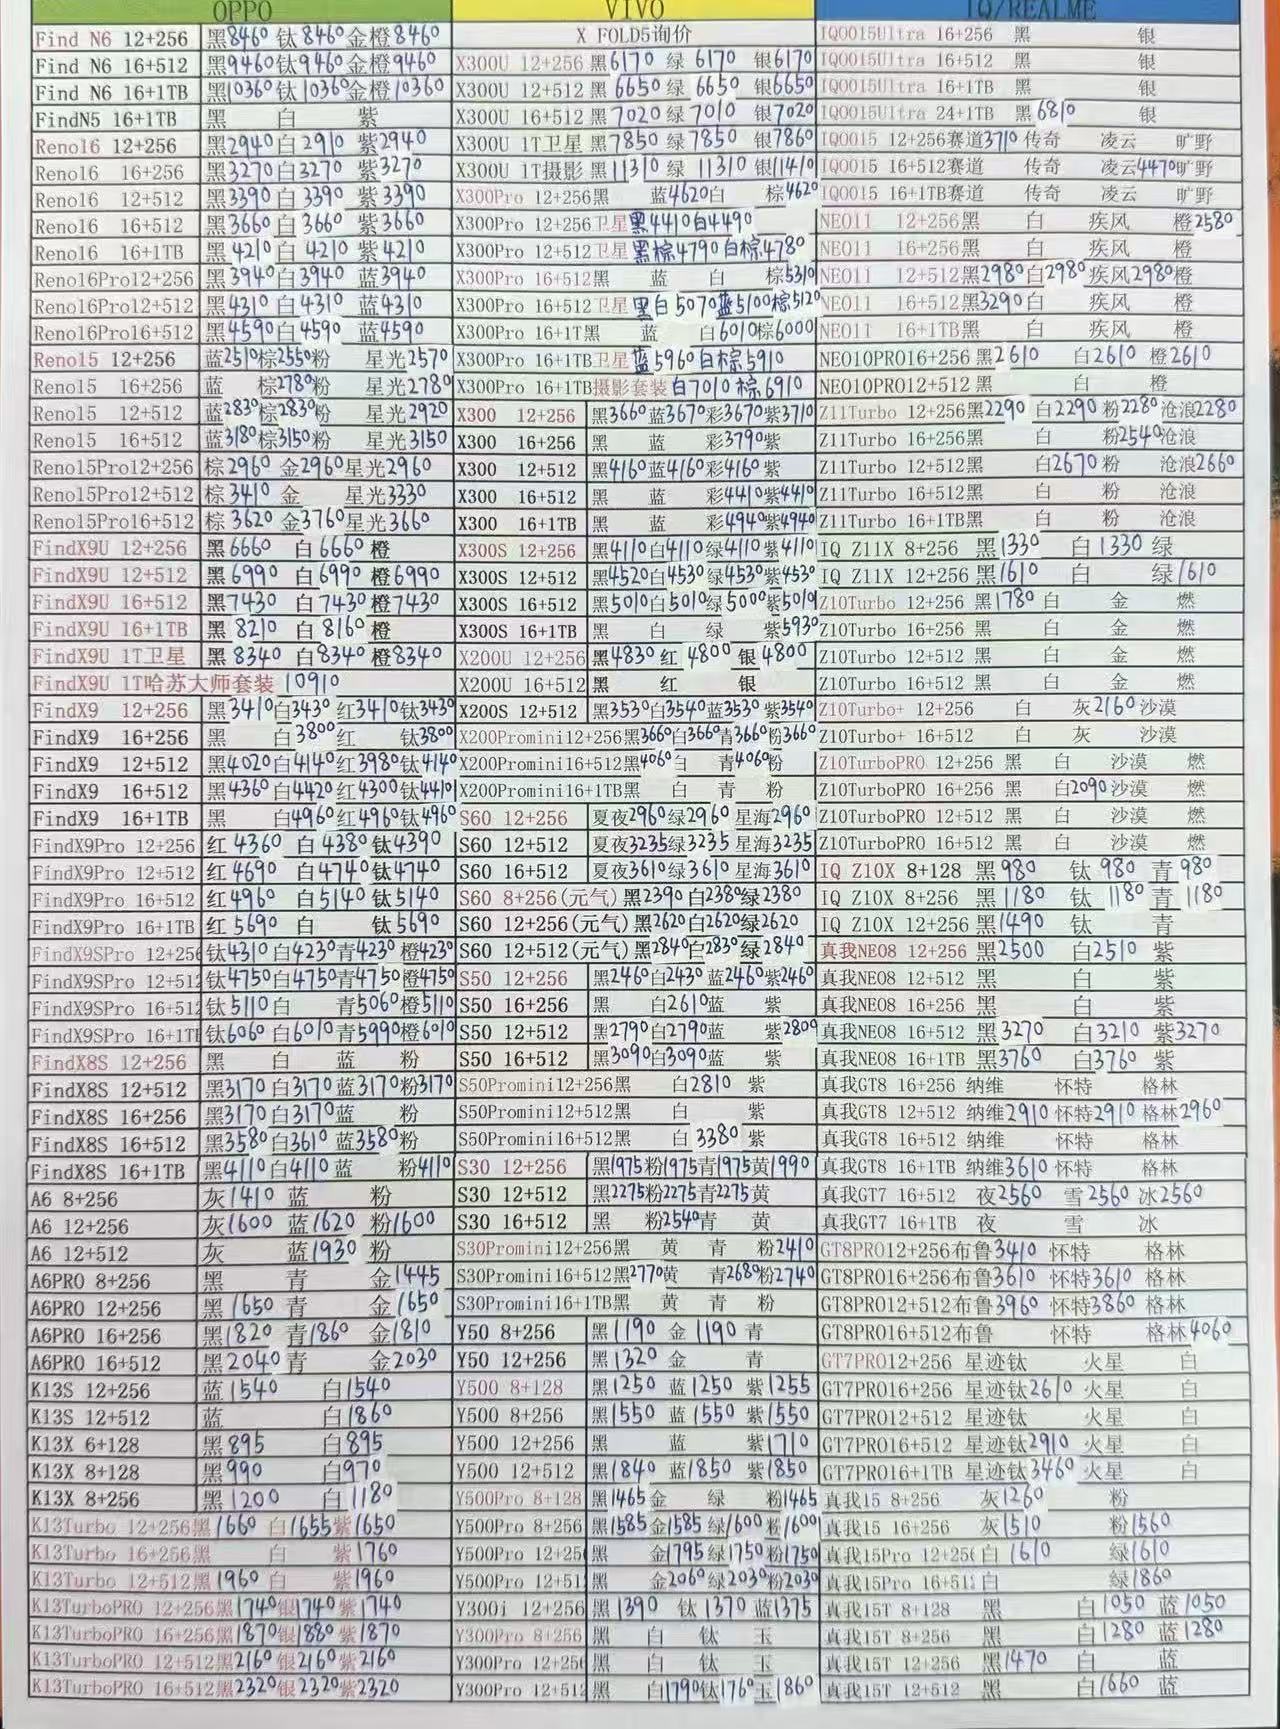 OPPO
Find N6 12+256 黑8460 钛8460金橙8460
Find N6 16+512 黑9460钛9460金橙9460
Find N6 16+1TB 黑10360钛10360金橙10360
FindN5 16+1TB 黑 白 紫
Reno16 12+256 黑2940白2910 紫2940
Reno16 16+256 黑3270白3270 紫3270
Reno16 12+512 黑3390白3390 紫3390
Reno16 16+512 黑3660白3660 紫3660
Reno16 16+1TB 黑4210白4210 紫4210
Reno16Pro12+256 黑3940白3940 蓝3940
Reno16Pro12+512 黑4310白4310 蓝4310
Reno16Pro16+512 黑4590白4590 蓝4590
Reno15 12+256 蓝2510棕2550粉 星光2570
Reno15 16+256 蓝 棕2780粉 星光2780
Reno15 12+512 蓝2830棕2830粉 星光2920
Reno15 16+512 蓝3180棕3150粉 星光3150
Reno15Pro12+256 棕2960 金2960星光2960
Reno15Pro12+512 棕3410 金 星光3330
Reno15Pro16+512 棕3620 金3760星光3660
FindX9U 12+256 黑6660 白6660橙
FindX9U 12+512 黑6990 白6990橙6990
FindX9U 16+512 黑7430 白7430橙7430
FindX9U 16+1TB 黑8210 白8160橙
FindX9U 1T卫星 黑8340 白8340橙8340
FindX9U 1T哈苏大师套装 10910
FindX9 12+256 黑3410白3430红3410钛3430
FindX9 16+256 黑 白3800红 钛3800
FindX9 12+512 黑4020白4140红3980钛4140
FindX9 16+512 黑4360白4420红4300钛4410
FindX9 16+1TB 黑 白4960红4960钛4960
FindX9Pro 12+256 红4360 白4380钛4390
FindX9Pro 12+512 红4690 白4740钛4740
FindX9Pro 16+512 红4960 白5140钛5140
FindX9Pro 16+1TB 红5690 白 钛5690
FindX9SPro 12+256 钛4310白4230青4230橙4230
FindX9SPro 12+512 钛4750白4750青4750橙4750
FindX9SPro 16+512 钛5110白 青5060橙5110
FindX9SPro 16+1TB 钛6060白6010青5990橙6010
FindX8S 12+256 黑 白 蓝 粉
FindX8S 12+512 黑3170白3170蓝3170粉3170
FindX8S 16+256 黑3170白3170蓝 粉
FindX8S 16+512 黑3580白3610蓝3580粉
FindX8S 16+1TB 黑4110白4110蓝 粉4110
A6 8+256 灰1410 蓝 粉
A6 12+256 灰1600 蓝1620 粉1600
A6 12+512 灰 蓝1930 粉
A6PRO 8+256 黑 青 金1445
A6PRO 12+256 黑1650 青 金1650
A6PRO 16+256 黑1820 青1860 金1810
A6PRO 16+512 黑2040青 金2030
K13S 12+256 蓝1540 白1540
K13S 12+512 蓝 白1860
K13X 6+128 黑895 白895
K13X 8+128 黑990 白970
K13X 8+256 黑1200 白1180
K13Turbo 12+256黑1660 白1655紫1650
K13Turbo 16+256黑 白 紫1760
K13Turbo 12+512黑1960 白 紫1960
K13TurboPRO 12+256黑1740银1740紫1740
K13TurboPRO 16+256黑1870银1880紫1870
K13TurboPRO 12+512黑2160银2160紫2160
K13TurboPRO 16+512黑2320银2320紫2320
VIVO
X FOLD5询价
X300U 12+256 黑6170 绿 6170 银6170
X300U 12+512 黑6650 绿 6650 银6650
X300U 16+512 黑7020绿 7010 银7020
X300U 1T卫星 黑7850 绿 7850 银7860
X300U 1T摄影 黑11310 绿 11310 银11410
X300Pro 12+256黑 蓝4620白 棕4620
X300Pro 12+256卫星黑4410白4490
X300Pro 12+512卫星黑棕4790白棕4780
X300Pro 16+512黑 蓝 白 棕5310
X300Pro 16+512卫星黑白5070蓝5100棕5120
X300Pro 16+1T黑 蓝 白6010棕6000
X300Pro 16+1TB卫星蓝5960白棕5910
X300Pro 16+1TB摄影套装白7010棕6910
X300 12+256 黑3660蓝3670彩3670紫3710
X300 16+256 黑 蓝 彩3790紫
X300 12+512 黑4160蓝4160彩4160紫
X300 16+512 黑 蓝 彩4410紫4410
X300 16+1TB 黑 蓝 彩4940紫4940
X300S 12+256 黑4110白4110绿4110紫4110
X300S 12+512 黑4520白4530绿4530紫4530
X300S 16+512 黑5010白5010绿5000紫5010
X300S 16+1TB 黑 白 绿 紫5930
X200U 12+256 黑4830红 4800 银4800
X200U 16+512 黑 红 银
X200S 12+512 黑3530白3540蓝3530紫3540
X200Promini12+256黑3660白3660青3660粉3660
X200Promini16+512黑4060白 青4060粉
X200Promini16+1TB黑 白 青 粉
S60 12+256 夏夜2960绿2960星海2960
S60 12+512 夏夜3235绿3235星海3235
S60 16+512 夏夜3610绿3610星海3610
S60 8+256(元气) 黑2390白2380绿2380
S60 12+256(元气) 黑2620白2620绿2620
S60 12+512(元气) 黑2840白2830绿2840
S50 12+256 黑2460白2430蓝2460紫2460
S50 16+256 黑 白2610蓝 紫
S50 12+512 黑2790白2790蓝 紫2800
S50 16+512 黑3090白3090蓝 紫
S50Promini12+256黑 白2810 紫
S50Promini12+512黑 白 紫
S50Promini16+512黑 白 3380 紫
S30 12+256 黑1975粉1975青1975黄1990
S30 12+512 黑2275粉2275青2275黄
S30 16+512 黑 粉2540青 黄
S30Promini12+256黑 黄 青 粉2410
S30Promini16+512黑2770黄 青2680粉2740
S30Promini16+1TB黑 黄 青 粉
Y50 8+256 黑1190 金1190青
Y50 12+256 黑1320 金 青
Y500 8+128 黑1250 蓝1250 紫1255
Y500 8+256 黑1550 蓝1550 紫1550
Y500 12+256 黑 蓝 紫1710
Y500 12+512 黑1840 蓝1850 紫1850
Y500Pro 8+128 黑1465金 绿 粉1465
Y500Pro 8+256 黑1585金1585绿1600粉1600
Y500Pro 12+256 黑 金1795绿1750粉1750
Y500Pro 12+512 黑 金2060绿2030粉2030
Y300i 12+256 黑1390 钛1370 蓝1375
Y300Pro 8+256 黑 白 钛 玉
Y300Pro 12+256 黑 白 钛 玉
Y300Pro 12+512 黑 白1790钛1760玉1860
IQ/REALME
IQOO15Ultra 16+256 黑 银
IQOO15Ultra 16+512 黑 银
IQOO15Ultra 16+1TB 黑 银
IQOO15Ultra 24+1TB 黑6810 银
IQOO15 12+256赛道3710传奇 凌云 旷野
IQOO15 16+512赛道 传奇 凌云4470旷野
IQOO15 16+1TB赛道 传奇 凌云 旷野
NEO11 12+256黑 白 疾风 橙2580
NEO11 16+256黑 白 疾风 橙
NEO11 12+512黑2980白2980疾风2980橙
NEO11 16+512黑3290白 疾风 橙
NEO11 16+1TB黑 白 疾风 橙
NEO10PRO16+256 黑2610 白2610 橙2610
NEO10PRO12+512 黑 白 橙
Z11Turbo 12+256黑2290 白2290粉2280沧浪2280
Z11Turbo 16+256黑 白 粉2540沧浪
Z11Turbo 12+512黑 白2670粉 沧浪2660
Z11Turbo 16+512黑 白 粉 沧浪
Z11Turbo 16+1TB黑 白 粉 沧浪
IQ Z11X 8+256 黑1330 白1330 绿
IQ Z11X 12+256 黑1610 白 绿1610
Z10Turbo 12+256 黑1780 白 金 燃
Z10Turbo 16+256 黑 白 金 燃
Z10Turbo 12+512 黑 白 金 燃
Z10Turbo 16+512 黑 白 金 燃
Z10Turbo+ 12+256 白 灰2160沙漠
Z10Turbo+ 16+512 白 灰 沙漠
Z10TurboPRO 12+256 黑 白 沙漠 燃
Z10TurboPRO 16+256 黑 白2090沙漠 燃
Z10TurboPRO 12+512 黑 白 沙漠 燃
Z10TurboPRO 16+512 黑 白 沙漠 燃
IQ Z10X 8+128 黑980 钛 980 青980
IQ Z10X 8+256 黑1180 钛 1180青1180
IQ Z10X 12+256 黑1490 钛 青
真我NEO8 12+256 黑2500 白2510 紫
真我NEO8 12+512 黑 白 紫
真我NEO8 16+256 黑 白 紫
真我NEO8 16+512 黑3270 白3210 紫3270
真我NEO8 16+1TB 黑3760 白3760 紫
真我GT8 16+256 纳维 怀特 格林
真我GT8 12+512 纳维2910 怀特2910 格林2960
真我GT8 16+512 纳维 怀特 格林
真我GT8 16+1TB 纳维3610怀特 格林
真我GT7 16+512 夜2560 雪2560 冰2560
真我GT7 16+1TB 夜 雪 冰
GT8PRO12+256布鲁3410 怀特 格林
GT8PRO16+256布鲁3610 怀特3610 格林
GT8PRO12+512布鲁3960 怀特3860 格林
GT8PRO16+512布鲁 怀特 格林4060
GT7PRO12+256 星迹钛 火星 白
GT7PRO16+256 星迹钛2610 火星 白
GT7PRO12+512 星迹钛 火星 白
GT7PRO16+512 星迹钛2910 火星 白
GT7PRO16+1TB 星迹钛3460火星 白
真我15 8+256 灰1260 粉
真我15 16+256 灰1510 粉1560
真我15Pro 12+256白 1610 绿1610
真我15Pro 16+512白 绿1860
真我15T 8+128 黑 白1050 蓝1050
真我15T 8+256 黑 白1280 蓝1280
真我15T 12+256 黑1470 白 蓝
真我15T 12+512 黑 白1660 蓝